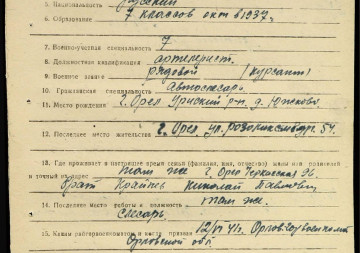 5. Национальность русский
6. Образование 7 классов окт в 1937г.
7. Военно-учетная специальность 7
8. Должностная квалификация артелерист.
9. Военное звание рядовой (курсант)
10. Гражданская специальность автослесарь
11. Место рождения г. Орел Урицкий р-н д.
12. Последнее место жительства г. Орел ул. розалюксембург. 54.
13. Где проживает в настоящее время семья (фамилия, имя, отчество) жены или родителей
и точный их адрес там же г. Орел Черкасская 96
брат Николай Павлович
14. Последнее место работы и должность там же.
слесарь
15. Каким райгорвоенкоматом и когда призван 12/VI 41г.
Орловской обл.